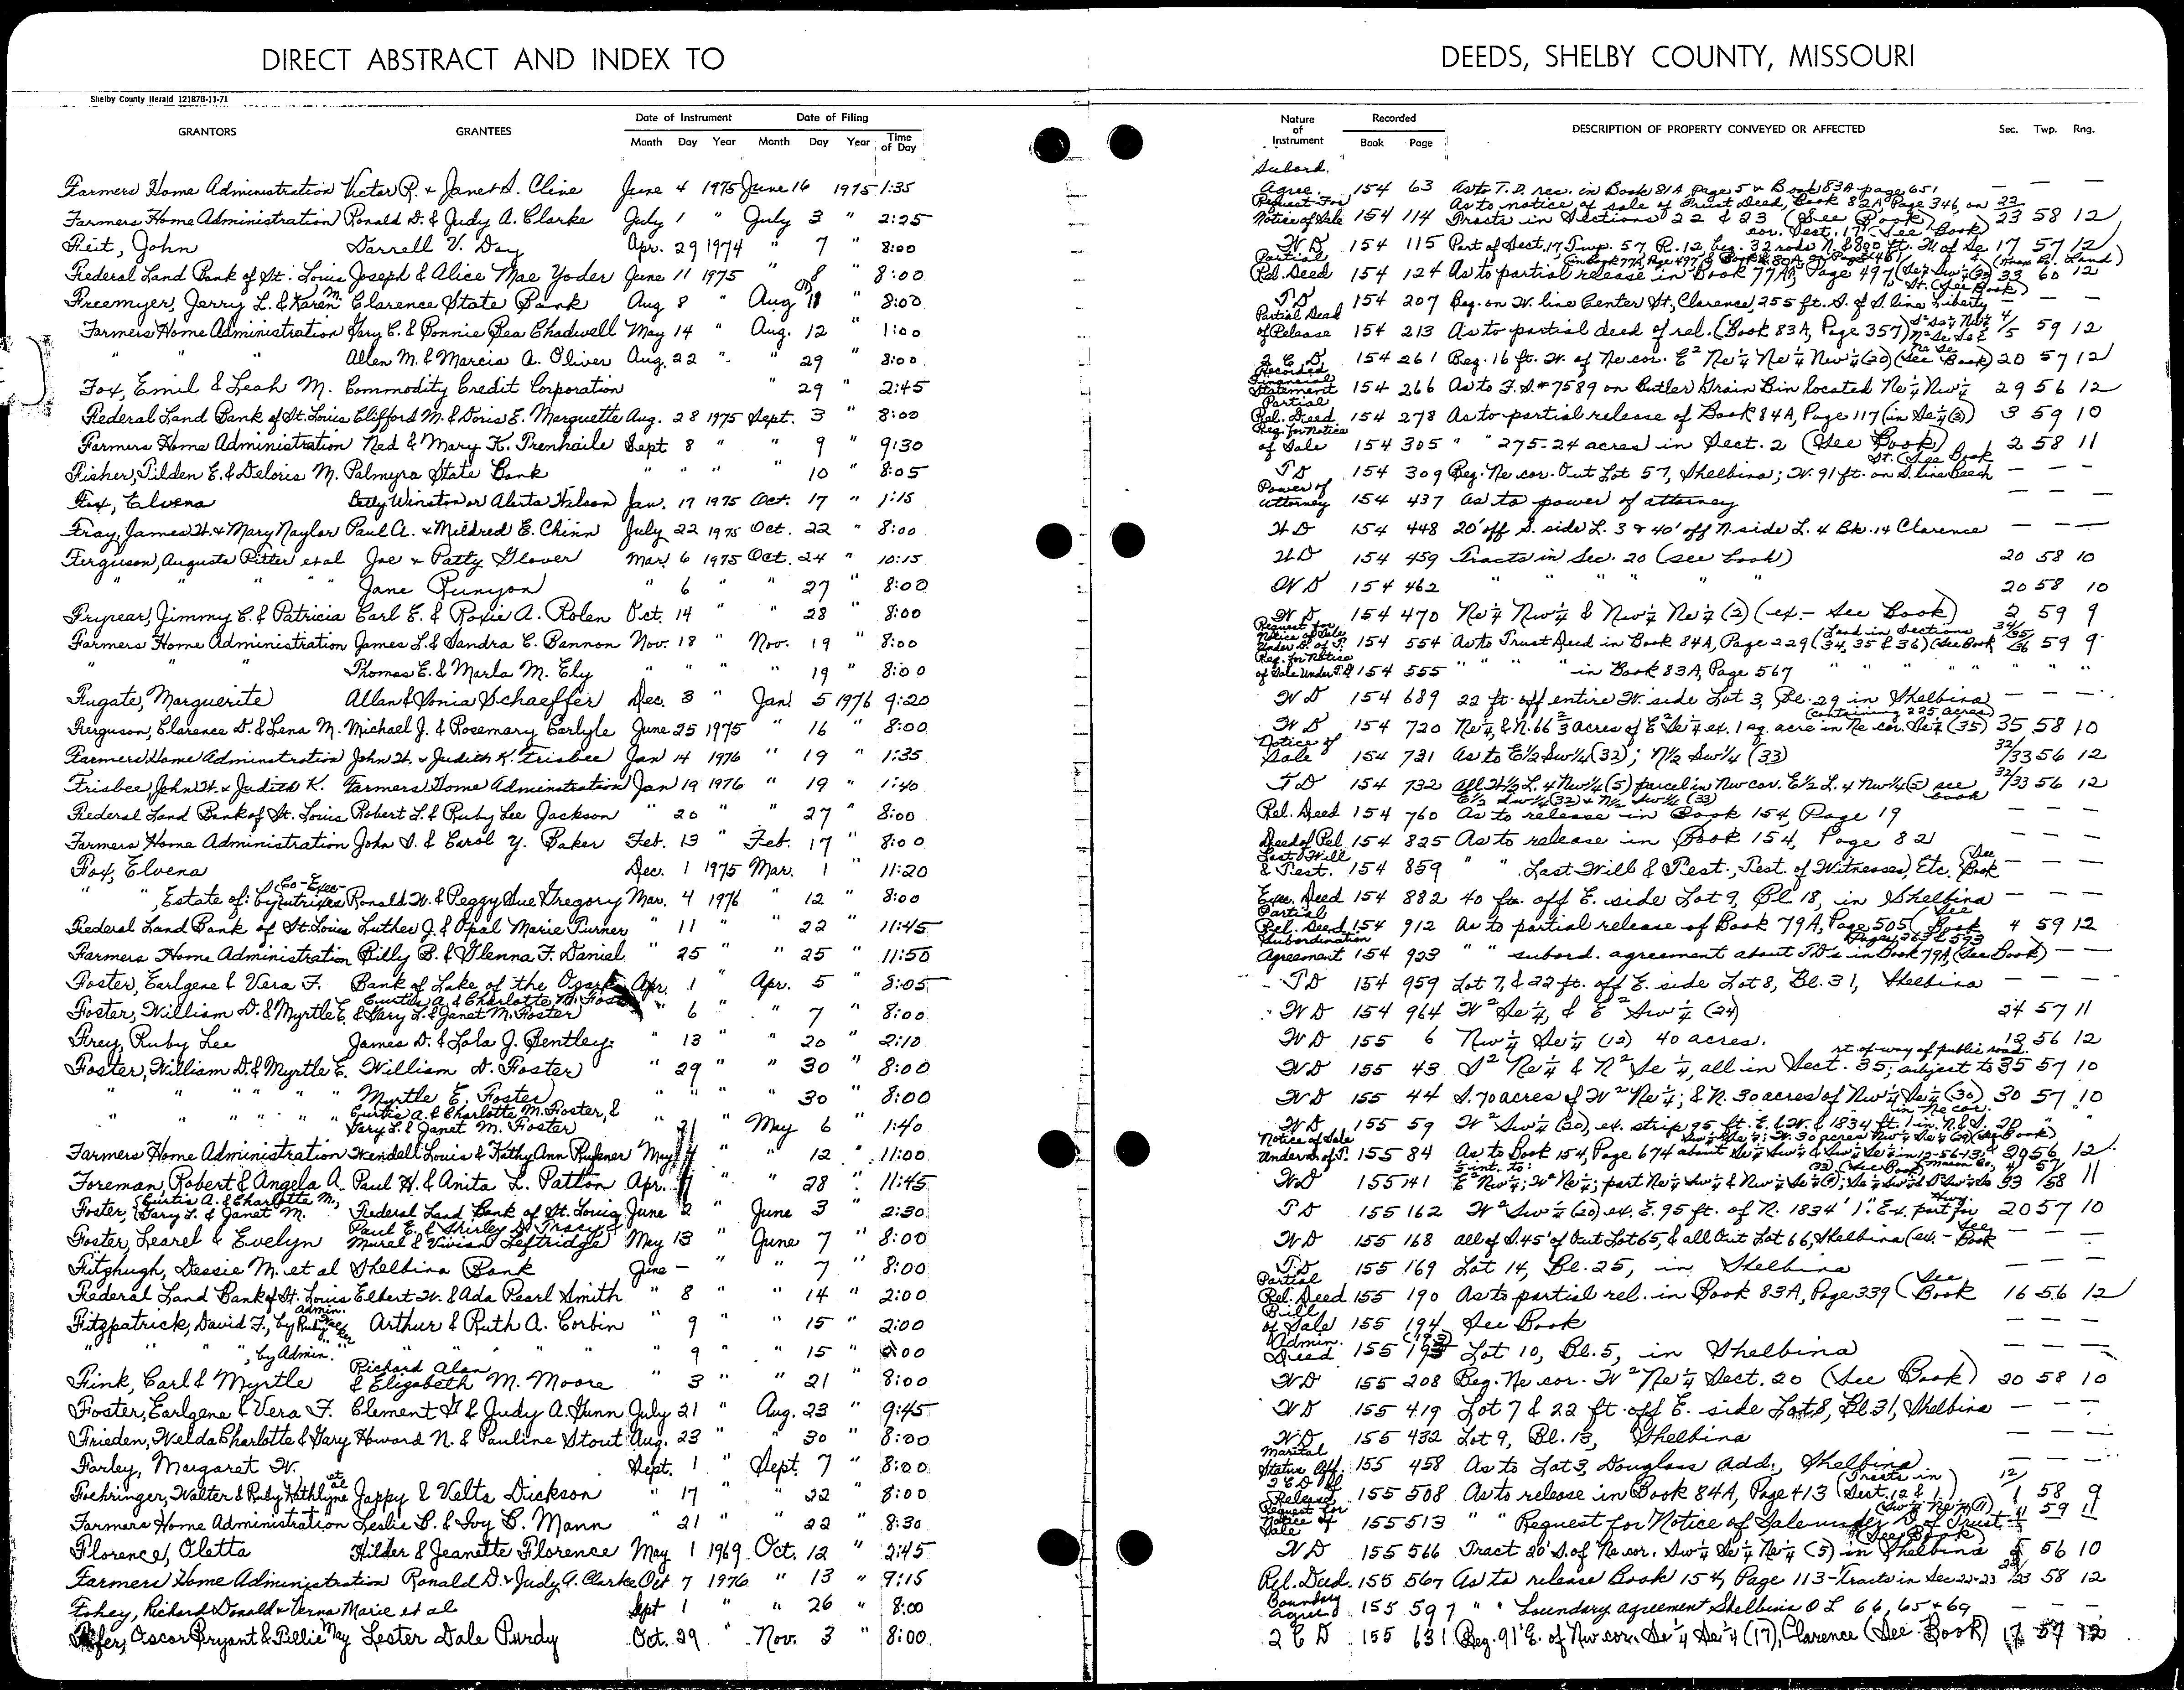 DIRECT ABSTRACT AND INDEX TO DEEDS, SHELBY COUNTY, MISSOURI
Shelby County Herald 12187B-11-71
GRANTORS GRANTEES Date of Instrument Month Day Year Date of Filing Month Day Year Time of Day Nature of Instrument Recorded Book Page DESCRIPTION OF PROPERTY CONVEYED OR AFFECTED Sec. Twp. Rng.
Farmers Home Administration Victor R. & Janet S. Cline June 4 1975 June 16 1975 1:35 Subord. Agree. 154 63 As to T.D. rec. in Book 81A Page 5 & Book 83A page 651 — — —
Farmers Home Administration Ronald D. & Judy A. Clarke July 1 " July 3 " 2:25 Request For Notice of Sale 154 114 As to notice of sale of Trust Deed, Book 82A, Page 346, on Tracts in Sections 22 & 23 (See Book) 22 23 58 12
Feit, John Darrell V. Day Apr. 29 1974 " 7 " 8:00 W D 154 115 Part of Sect. 17, Twp. 57, R. 12, beg. 32 rods N. & 800 ft. W. of Se cor. Sect. 17 (See Book) 17 57 12
Federal Land Bank of St. Louis Joseph & Alice Mae Yoder June 11 1975 " 8 " 8:00 Partial Rel. Deed 154 124 As to partial release in Book 77A, Page 497 33 60 12
Freemyer, Jerry L. & Karen M. Clarence State Bank Aug 8 " Aug 11 " 8:00 T D 154 207 Beg. on W. line Center St., Clarence, 255 ft. S. of S. line Liberty St. (See Book) — — —
Farmers Home Administration Gary C. & Bonnie Rea Chadwell May 14 " Aug. 12 " 1:00 Partial Deed of Release 154 213 As to partial deed of rel. (Book 83A, Page 357) 4/5 59 12
" " " Allen M. & Marcia A. Oliver Aug. 22 " " 29 " 8:00 2 C D 154 261 Beg. 16 ft. W. of Ne cor. E² Ne¼ Ne¼ Nw¼ (20) (See Book) 20 57 12
Fox, Emil & Leah M. Commodity Credit Corporation " 29 " 2:45 Recorded Financial Statement 154 266 As to F.S. # 7589 on Butler Grain Bin located Ne¼ Nw¼ 29 56 12
Federal Land Bank of St. Louis Clifford M. & Doris E. Marquette Aug. 28 1975 Sept. 3 " 8:00 Partial Rel. Deed 154 278 As to partial release of Book 84A, Page 117 (in Se¼ (3)) 3 59 10
Farmers Home Administration Ned & Mary K. Trenhaile Sept 8 " " 9 " 9:30 Req. for Notice of Sale 154 305 " " 275.24 acres in Sect. 2 (See Book) 2 58 11
Fisher, Tilden E. & Deloris M. Palmyra State Bank " " " " 10 " 8:05 T D 154 309 Beg. Ne cor. Out Lot 57, Shelbina; W. 91 ft. on S. line Beech St. (See Book — — —
Fox, Elvena Betty Winston or Alerta Wilson Jan. 17 1975 Oct. 17 " 1:15 Power of Attorney 154 437 As to power of attorney — — —
Fray, James W. & Mary Naylor Paul A. & Mildred E. Chinn July 22 1975 Oct. 22 " 8:00 W D 154 448 20' off S. side L. 3 & 40' off N. side L. 4 Bk. 14 Clarence — — —
Ferguson, Augusta Ritter et al Joe & Patty Glover Mar. 6 1975 Oct. 24 " 10:15 W D 154 459 Tracts in Sec. 20 (see book) 20 58 10
" " " " Jane Runyon " 6 " " 27 " 8:00 W D 154 462 " " " " " 20 58 10
Frypear, Jimmy C. & Patricia Carl E. & Roxie A. Rolan Oct. 14 " " 28 " 8:00 W D 154 470 Ne¼ Nw¼ & Nw¼ Ne¼ (2) (ex. - See Book) 2 59 9
Farmers Home Administration James L. & Sandra C. Bannon Nov. 18 " Nov. 19 " 8:00 Request for Notice of Sale Under D. of T. 154 554 As to Trust Deed in Book 84A, Page 229 (Land in Sections 34, 35 & 36) (See Book 34/35/36 59 9
" " " Thomas E. & Marla M. Ely " " " " 19 " 8:00 Req. for Notice of Sale Under T.D. 154 555 " " " " in Book 83A, Page 567 " " " " " "
Fugate, Marguerite Allan & Sonia Schaeffer Dec. 3 " Jan. 5 1976 9:20 W D 154 689 22 ft. off entire W. side Lot 3, Bl. 29 in Shelbina — — —
Ferguson, Clarence D. & Lena M. Michael J. & Rosemary Carlyle June 25 1975 " 16 " 8:00 W D 154 720 Ne¼, & N. 66⅔ acres of E² Se¼ ex. 1 sq. acre in Ne cor. Se¼ (35) (containing 225 acres) 35 58 10
Farmers Home Administration John W. & Judith K. Frisbee Jan 14 1976 " 19 " 1:35 Notice of Sale 154 731 As to E½ Sw¼ (32); N½ Sw¼ (33) 32/33 56 12
Frisbee, John W. & Judith K. Farmers Home Adminstration Jan 19 1976 " 19 " 1:40 T D 154 732 All W½ L. 4 Nw¼ (5) parcel in Nw cor. E½ L. 4 Nw¼ (5) see book E½ Sw¼ (32) & N½ Sw¼ (33) 32/33 56 12
Federal Land Bank of St. Louis Robert L. & Ruby Lee Jackson " 20 " " 27 " 8:00 Rel. Deed 154 760 As to release in Book 154, Page 19 — — —
Farmers Home Administration John S. & Carol Y. Baker Feb. 13 " Feb. 17 " 8:00 Deed of Rel. 154 825 As to release in Book 154, Page 82 — — —
Fox, Elvena Dec. 1 1975 Mar. 1 " 11:20 Last Will & Test. 154 859 " " Last Will & Test., Test. of Witnesses, Etc. (See Book — — —
" " , Estate of: by Co-Executrixes Ronald W. & Peggy Sue Gregory Mar. 4 1976 " 12 " 8:00 Exe. Deed 154 882 40 ft. off E. side Lot 9, Bl 18, in Shelbina — — —
Federal Land Bank of St. Louis Luther J. & Opal Marie Turner " 11 " " 22 " 11:45 Partial Rel. Deed 154 912 As to partial release of Book 79A, Page 505 (See Book 4 59 12
Farmers Home Administration Billy B. & Glenna F. Daniel " 25 " " 25 " 11:50 Subordination Agreement 154 923 " " subord. agreement about T.D's in Book 79A, Pages 263 & 593 (See Book) — —
Foster, Earlgene & Vera F. Bank of Lake of the Ozarks Apr. 1 " Apr. 5 8:05 T D 154 959 Lot 7, & 22 ft. off E. side Lot 8, Bl. 31, Shelbina — — —
Foster, William D. & Myrtle E. Curtis A. & Charlotte M. Foster & Gary L. & Janet M. Foster " 6 " " 7 " 8:00 W D 154 964 W² Se¼, & E² Sw¼ (24) 24 57 11
Frey, Ruby Lee James D. & Lola J. Bentley " 13 " 20 " 2:10 W D 155 6 Nw¼ Se¼ (12) 40 acres. 12 56 12
Foster, William D. & Myrtle E. William D. Foster " 29 " " 30 " 8:00 W D 155 43 S² Ne¼ & N² Se¼, all in Sect. 35; subject to rt of way of public road. 35 57 10
" " " " " Myrtle E. Foster " " " " 30 " 8:00 W D 155 44 S. 70 acres of W² Ne¼; & N. 30 acres of Nw¼ Se¼ (30) 30 57 10
" " " " " Curtis A. & Charlotte M. Foster, & Gary L. & Janet M. Foster " 21 " May 6 " 1:40 W D 155 59 W² Sw¼ (20), ex. strip 95 ft. E. & W. & 1834 ft. 1 in. N. & S. in Ne cor. 20 " "
Farmers Home Administration Wendell Louis & Kathy Ann Rufener May " " 12 " 11:00 Notice of Sale Under D. of T. 155 84 As to Book 154, Page 674 about 29 56 12
Foreman, Robert & Angela A. Paul H. & Anita L. Patton Apr. " " 28 " 11:45 W D 155 141 E² Nw¼; W² Ne¼; part Ne¼ Sw¼ & Nw¼ Se¼ 33 58 11
Foster, Curtis A. & Charlotte M., Gary L. & Janet M. Federal Land Bank of St. Louis June 2 " June 3 " 2:30 T D 155 162 W² Sw¼ (20) ex. E. 95 ft. of N. 1834' 1". Ex. part for Hwy. 20 57 10
Foster, Learel & Evelyn Paul E. & Shirley D. Tracy & Murel & Vivian Leftridge May 13 " June 7 " 8:00 W D 155 168 All of S. 45' of Out Lot 65, & all Out Lot 66, Shelbina (ex. - See Book — — —
Fitzhugh, Dessie M. et al Shelbina Bank June — " " 7 " 8:00 T D 155 169 Lot 14, Bl. 25, in Shelbina — — —
Federal Land Bank of St. Louis Elbert W. & Ada Pearl Smith " 8 " 14 " 2:00 Partial Rel. Deed 155 190 As to partial rel. in Book 83A, Page 339 (See Book 16 56 12
Fitzpatrick, David F., by Ruby Admin. Arthur & Ruth A. Corbin " 9 " 15 " 2:00 Bill of Sale 155 194 See Book — — —
" " " , by Admin. " " " " " " 9 " 15 " 2:00 Admin. Deed 155 193 Lot 10, Bl. 5, in Shelbina — — —
Fink, Carl & Myrtle Richard Alan & Elizabeth M. Moore " 3 " " 21 " 8:00 W D 155 208 Beg. Ne cor. W² Ne¼ Sect. 20 (See Book) 20 58 10
Foster, Earlgene & Vera F. Clement G. & Judy A. Gunn July 21 " Aug. 23 " 9:45 W D 155 419 Lot 7 & 22 ft. off E. side Lot 8, Bl. 31, Shelbina — — —
Frieden, Welda Charlotte & Gary Howard N. & Pauline Stout Aug. 23 " " 30 " 8:00 W D 155 432 Lot 9, Bl. 13, Shelbina — — —
Farley, Margaret W. Sept. 1 " Sept. 7 " 8:00 Marital Status Aff. 155 458 As to Lot 3, Douglass Add., Shelbina — — —
Foehringer, Walter & Ruby Kathlyne et al Jappy & Velta Dickson " 17 " 22 " 8:00 2 C D of Release 155 508 As to release in Book 84A, Page 413 (Tracts in Sect. 12 & 1) 12/1 58 9
Farmers Home Administration Leslie B. & Ivy B. Mann " 21 " " 22 " 8:30 Request for Notice of Sale 155 513 " " Request for Notice of Sale under D. of Trust (Sw¼ Ne¼ (11) (See Book) 11 59 11
Florence, Oletta Hilder & Jeanette Florence May 1 1969 Oct. 12 " 2:45 W D 155 566 Tract 20' S. of Ne cor. Sw¼ Se¼ Ne¼ (5) in Shelbina 5 56 10
Farmers Home Administration Ronald D. & Judy A. Clarke Oct 7 1976 " 13 " 9:15 Rel. Deed. 155 567 As to release Book 154, Page 113 - Tracts in Sec 22-23 22/23 58 12
Fohey, Richard Donald & Verna Marie et al Sept 1 " " 26 " 8:00 Boundary Agree 155 597 " " boundary agreement Shelbina O L 66, 65 & 69 — — —
Oscar Bryant & Tillie May Lester Dale Purdy Oct. 29 " Nov. 3 " 8:00 2 C D 155 631 Beg. 91' E. of Nw cor. Se¼ Se¼ (17), Clarence (See Book) 17 57 12